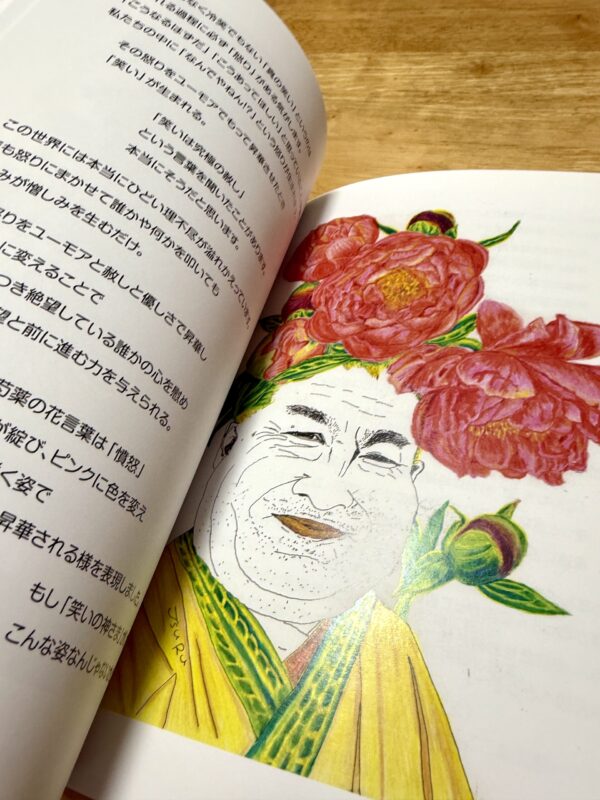 なく冷笑でもない「真の笑い」というの
れる過程に必ず「怒り」がある気がします。
「こうなるはずだ」「こうあってほしい」と思ってい
私たちの中に「なんでやねん!?」という怒りが
その怒りをユーモアでもって昇華させたとき
「笑い」が生まれる。
「笑いは究極の赦し」
という言葉を聞いたことがあります。
本当にそうだと思います。
この世界には本当にひどい理不尽が溢れかえっています。
も怒りにまかせて誰かや何かを叩いても
みが憎しみを生むだけ。
怒りをユーモアと赦しと優しさで昇華し
に変えることで
つき絶望している誰かの心を慰め
望と前に進む力を与えられる。
芍薬の花言葉は「憤怒」
が綻び、ピンクに色を変え
く姿で
昇華される様を表現しました
もし「笑いの神さま」
こんな姿なんじゃない